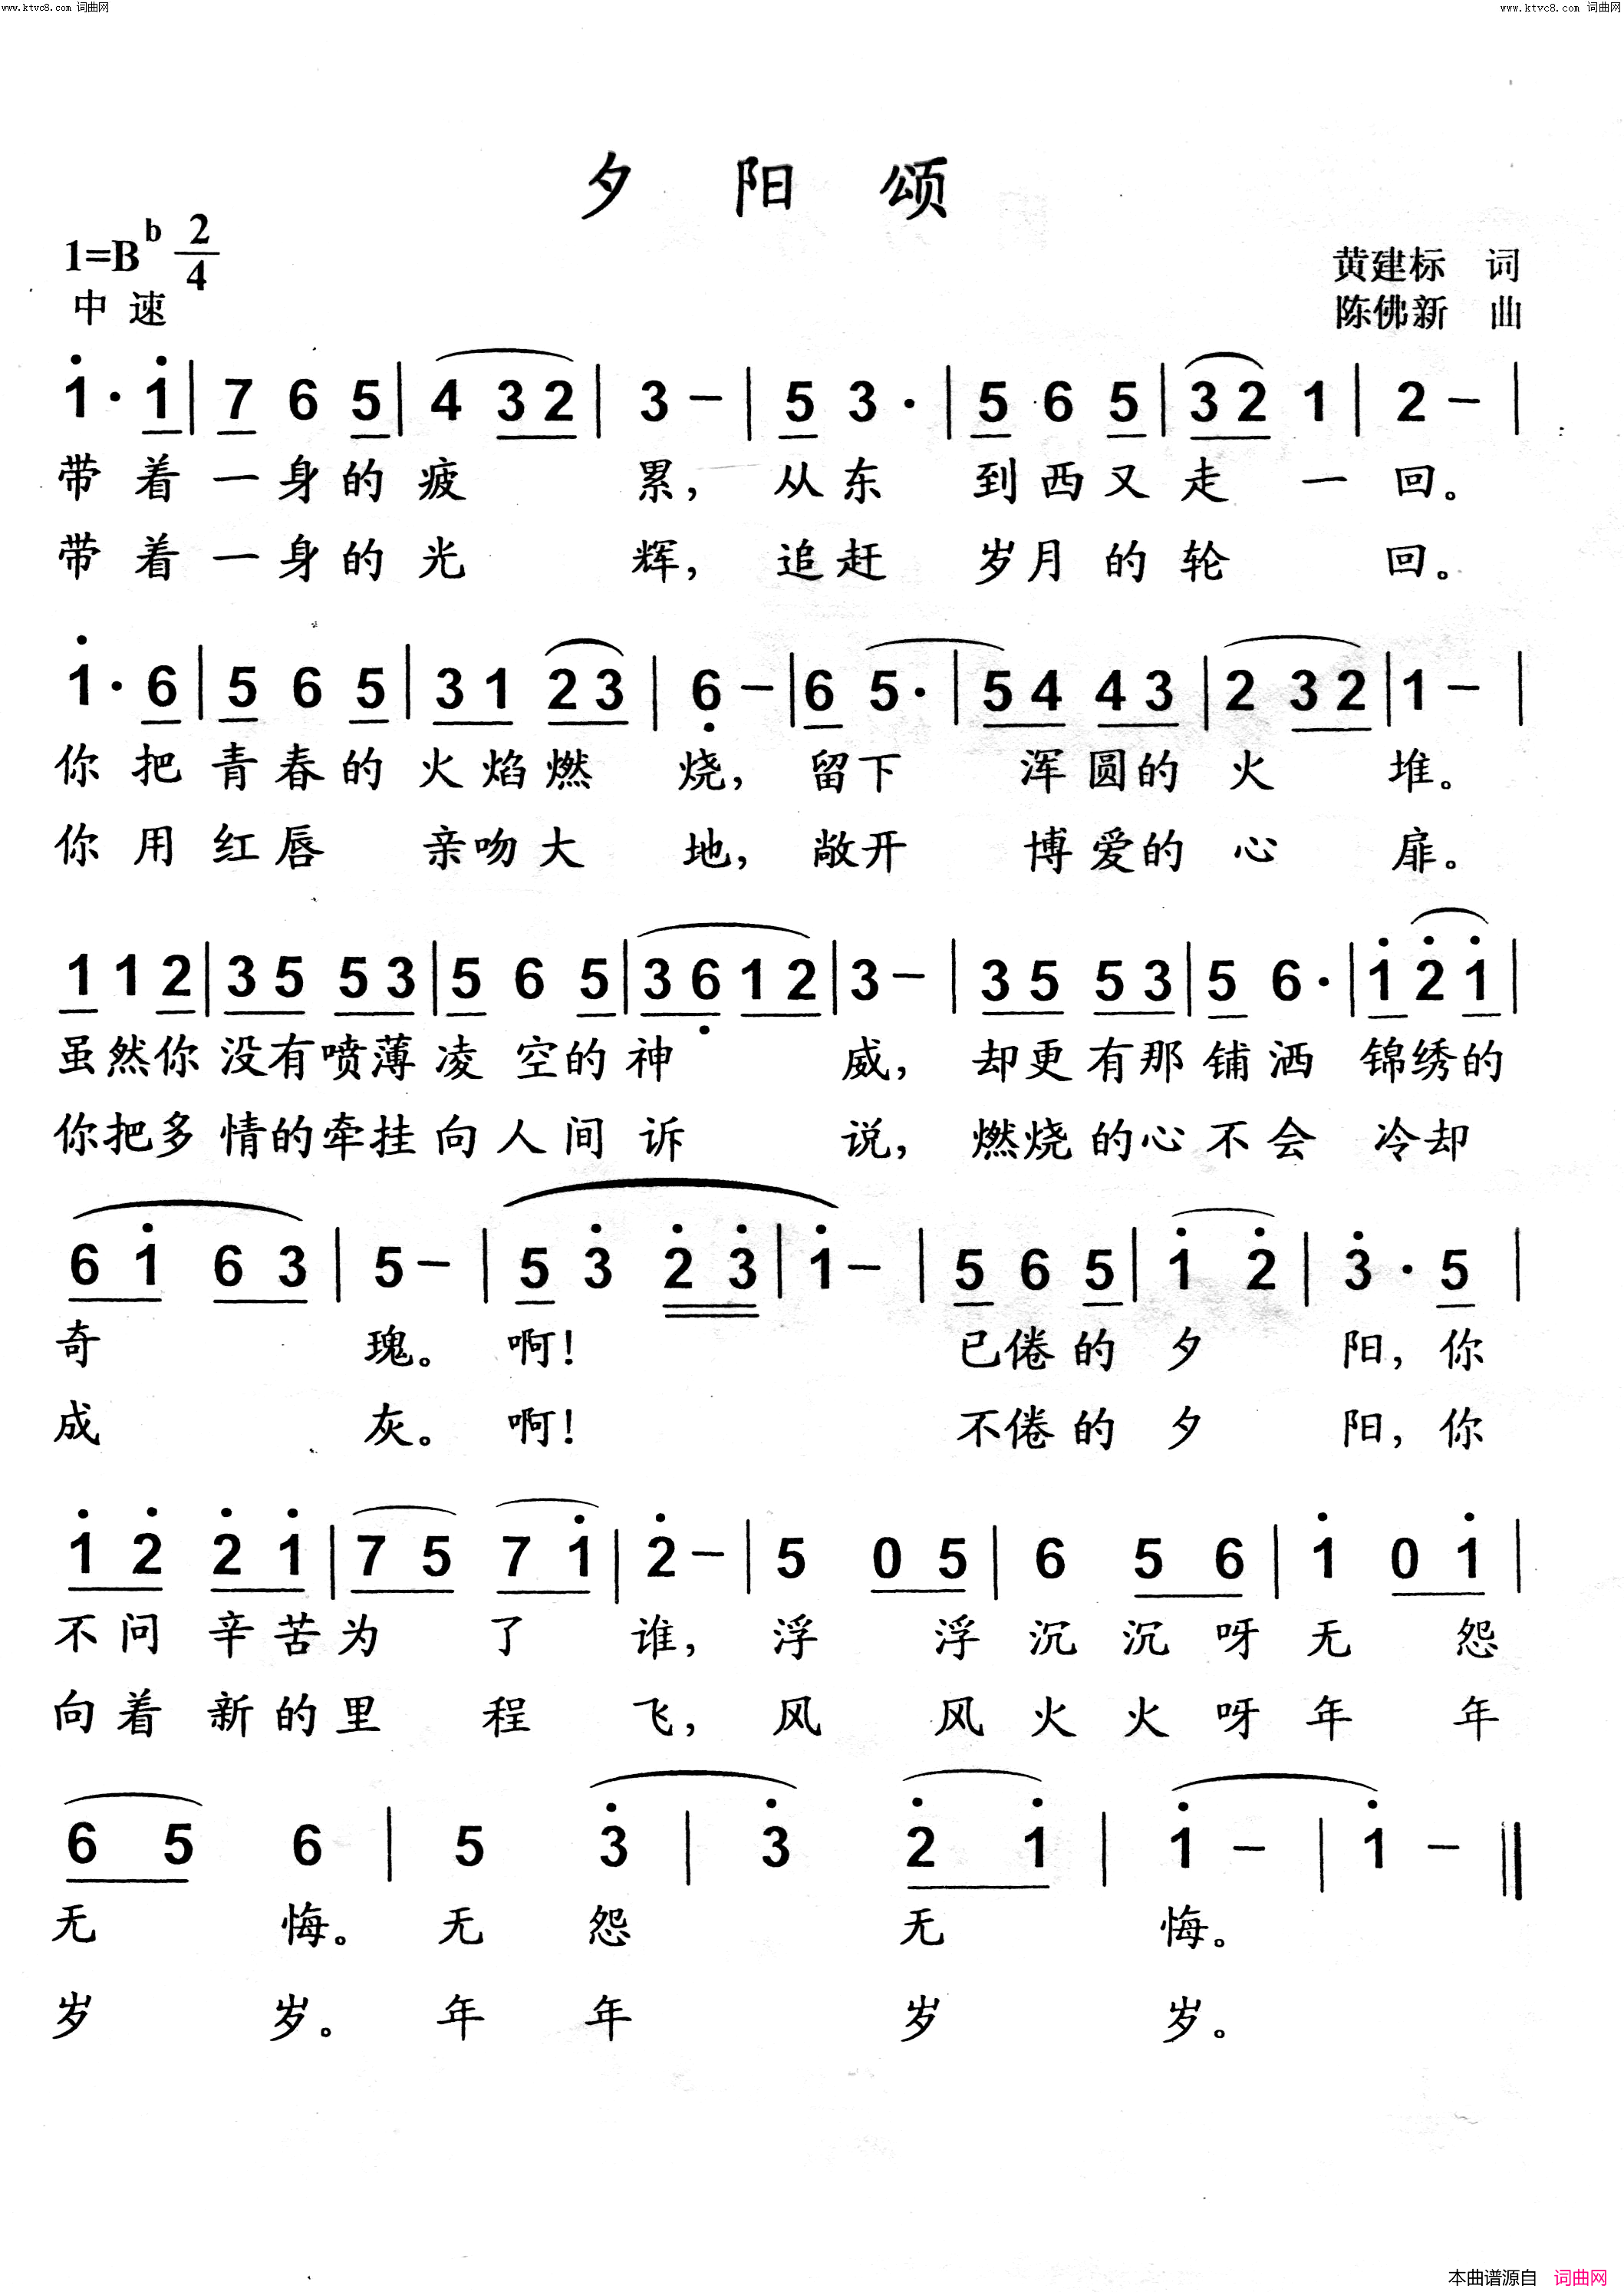 www.ktvc8.com 词曲网 www.ktvc8.com 词曲网
夕 阳 颂
1=B b 2/4
中 速
黄建标 词
陈佛新 曲
1 · 1 | 7 6 5 | 4 3 2 | 3 – | 5 3 · | 5 6 5 | 3 2 1 | 2 – |
带 着 一 身 的 疲 累, 从 东 到 西 又 走 一 回。
带 着 一 身 的 光 辉, 追 赶 岁 月 的 轮 回。
1 · 6 | 5 6 5 | 3 1 2 3 | 6 – | 6 5 · | 5 4 4 3 | 2 3 2 | 1 – |
你 把 青 春 的 火 焰 燃 烧, 留 下 浑 圆 的 火 堆。
你 用 红 唇 亲 吻 大 地, 敞 开 博 爱 的 心 扉。
1 1 2 | 3 5 5 3 | 5 6 5 | 3 6 1 2 | 3 – | 3 5 5 3 | 5 6 · | 1 2 1 |
虽 然 你 没 有 喷 薄 凌 空 的 神 威, 却 更 有 那 铺 洒 锦 绣 的
你 把 多 情 的 牵 挂 向 人 间 诉 说, 燃 烧 的 心 不 会 冷 却
6 1 6 3 | 5 – | 5 3 2 3 | 1 – | 5 6 5 | 1 2 | 3 · 5 |
奇 瑰。 啊! 已 倦 的 夕 阳, 你
成 灰。 啊! 不 倦 的 夕 阳, 你
1 2 2 1 | 7 5 7 1 | 2 – | 5 0 5 | 6 5 6 | 1 0 1 |
不 问 辛 苦 为 了 谁, 浮 浮 沉 沉 呀 无 怨
向 着 新 的 里 程 飞, 风 风 火 火 呀 年 年
6 5 6 | 5 3 | 3 2 1 | 1 – | 1 – ‖
无 悔。 无 怨 无 悔。
岁 岁。 年 年 岁 岁。
本曲谱源自 词曲网